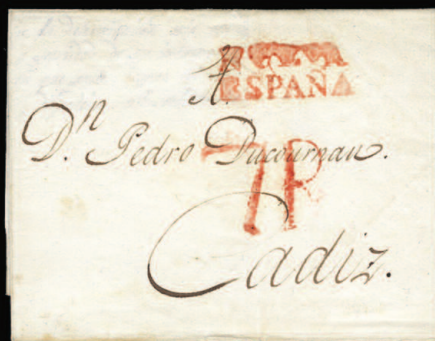 A
ESPAÑA
Dn. Pedro Ducournau.
7R
Cadiz.